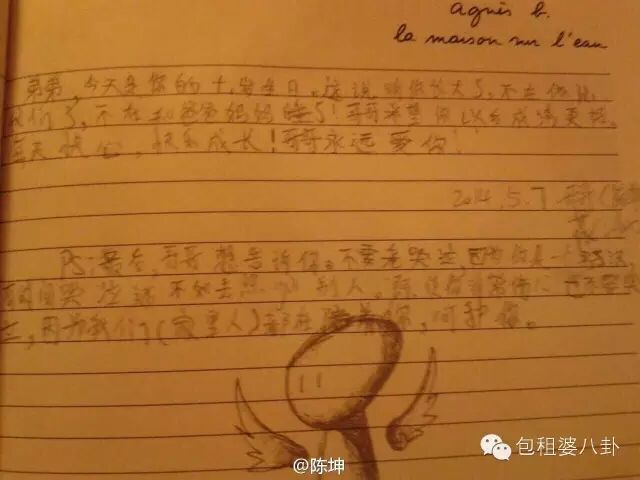 agnès b.
la maison sur l'eau
弟弟,今天是你的十岁生日。这说明你长大了,不在依
我们了,不在和爸爸妈妈睡了!哥哥希望你以后成绩更
每天快心,快乐成长!哥哥永远爱你!
2014.5.7 哥哥
PS:最后,哥哥想告诉你。不要老哭泣,因为你是一
时间哭泣还不如去 别人。
因为我们(家里人)都在 你,呵护你。
@陈坤
包租婆八卦